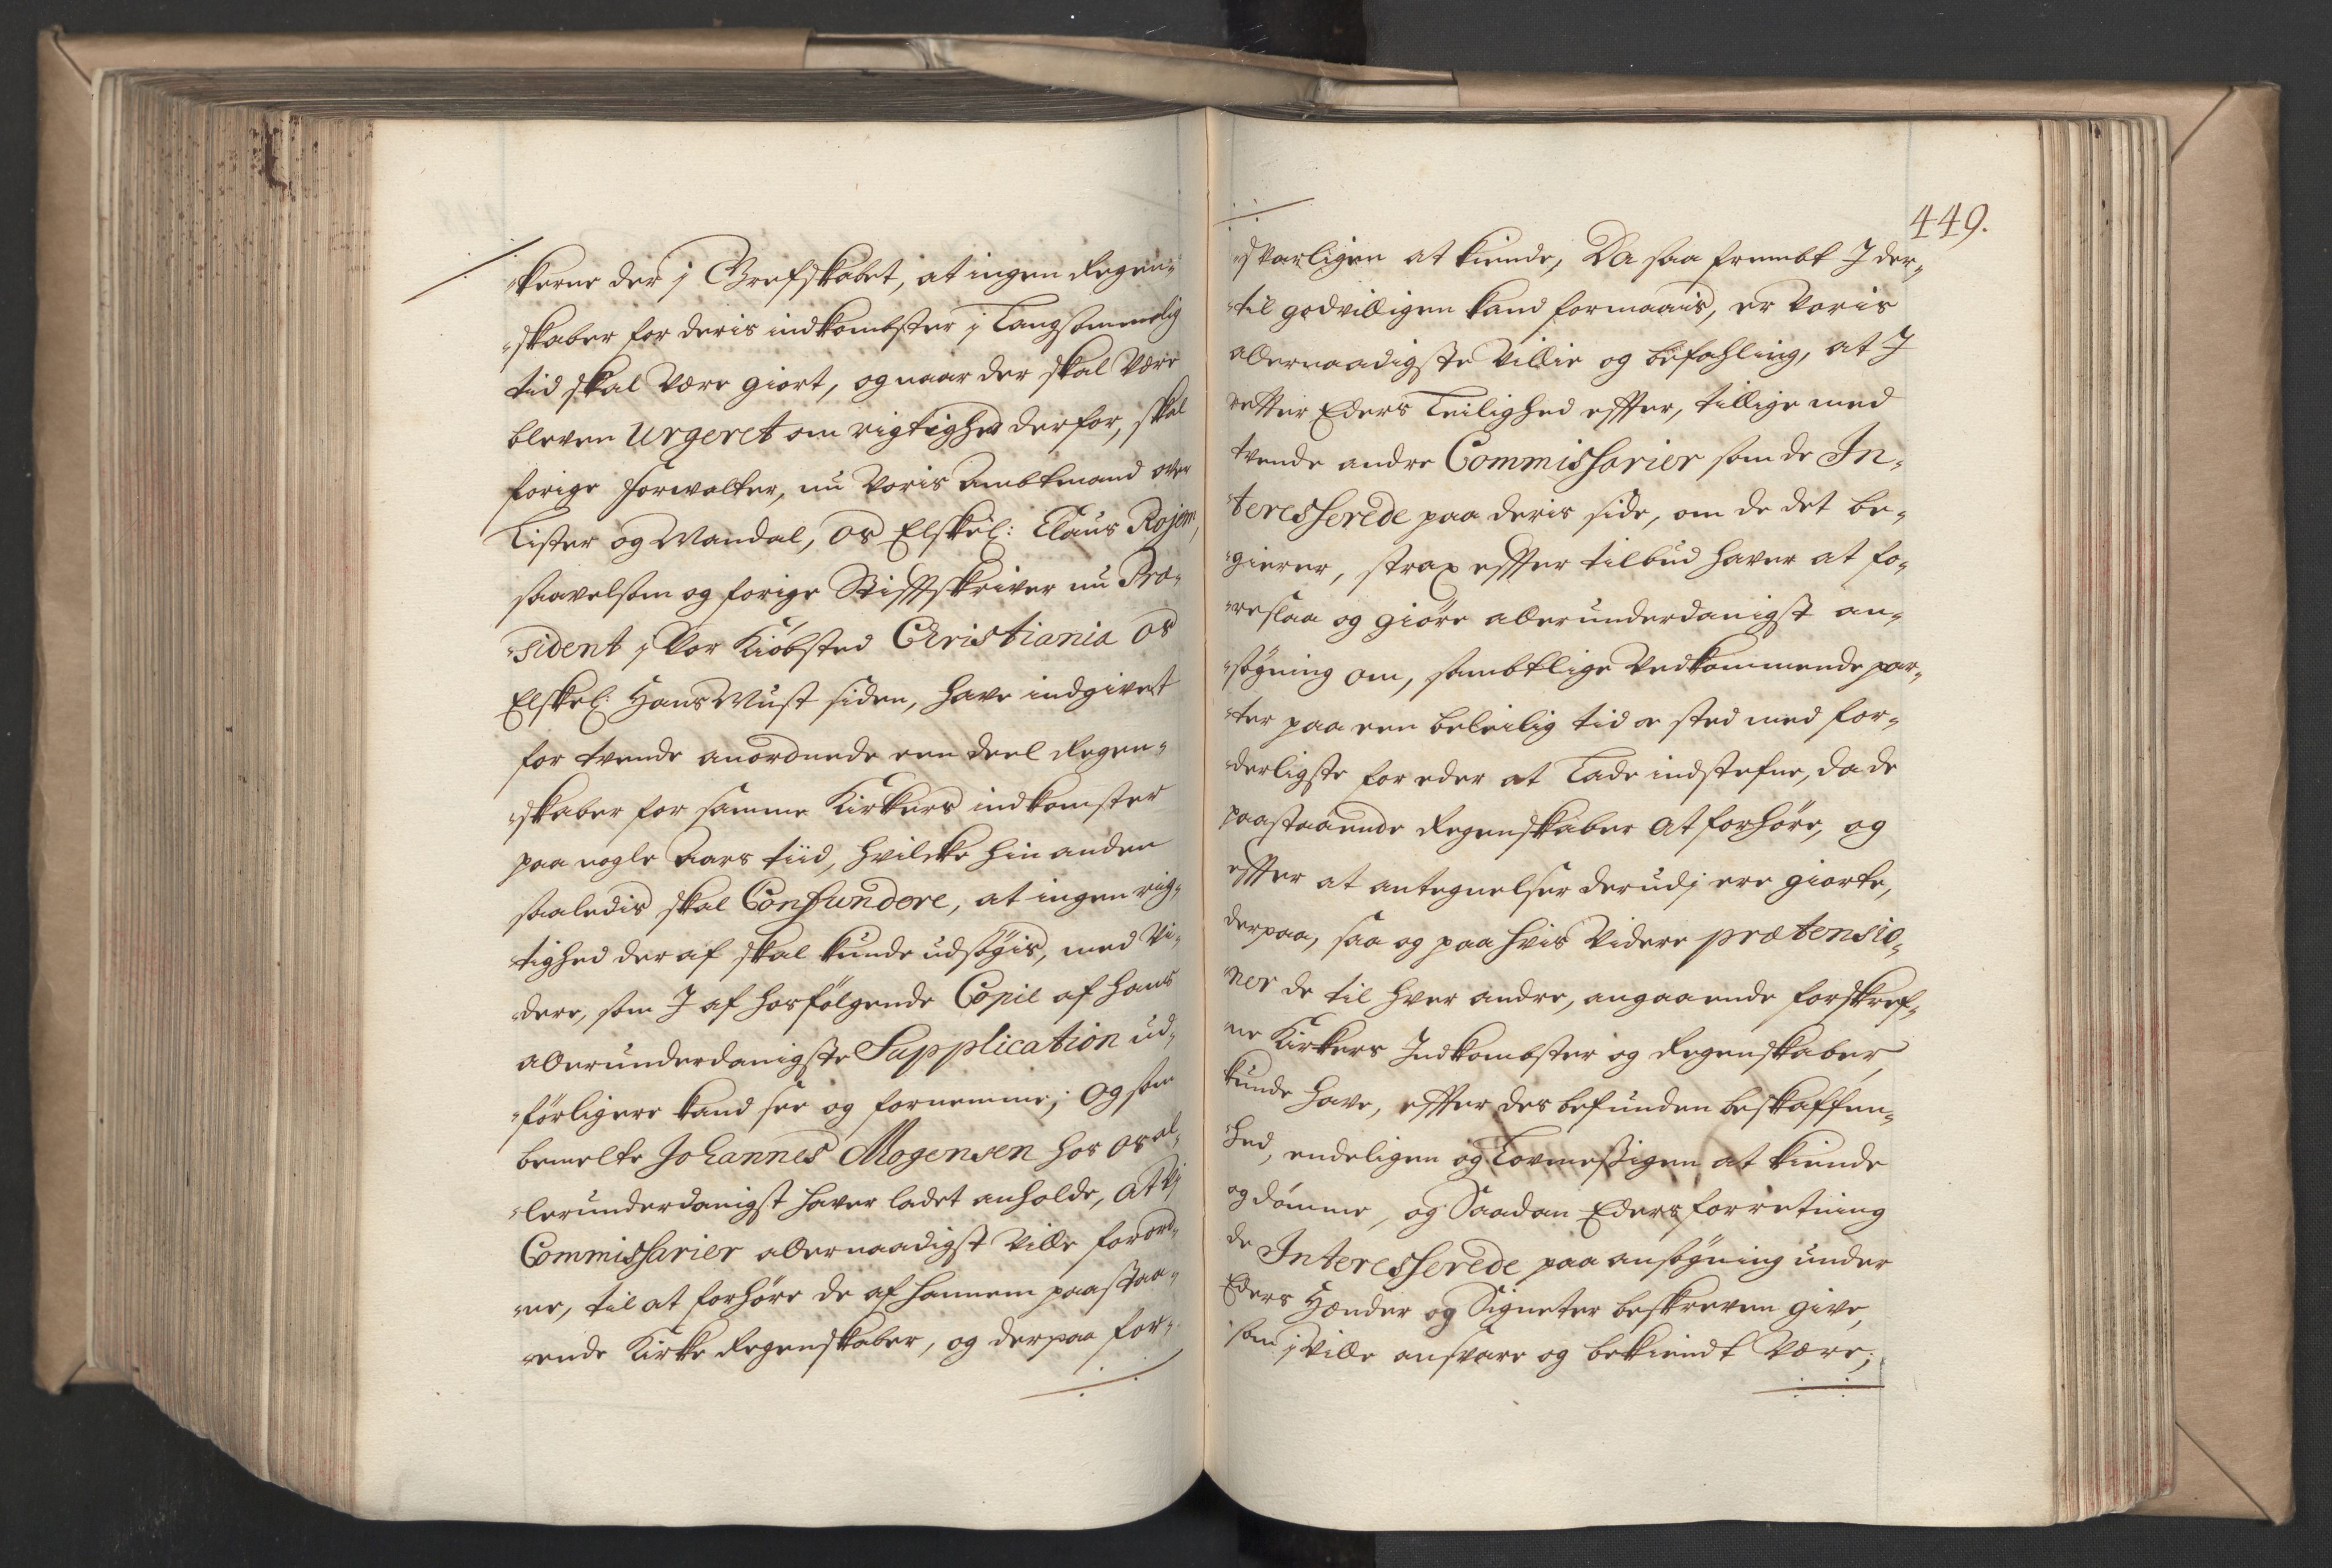 kerne der j Grefskabet, at ingen Regen-
skaber for deris indkombster j Langsommelig
tid skal være giort, og naar der skal være
bleven Urgeret om rigtighed derfor, skal
forige Forvalter, nu Voris Ambtmand over
Lister og Mandal, Os Elskel: Claus Rojem,
saavelsom og forige Stifftskriver nu Præ-
sident j Vor Kiøbsted Christiania Os
Elskel: Hans Must siden, have indgivet
for tvende anordnede een deel Regen-
skaber for samme Kirkers indkomster
paa nogle Aars tiid, hvilcke hin anden
saaledis skal Confundere, at ingen rig-
tighed der af skal kunde udsøgis, med vi-
dere, som J af hosfølgende Copil af hans
allerunderdanigste Supplication ud-
førligere kand see og fornemme; Og som
bemelte Johannes Mogensen hos os al-
lerunderdanigst haver ladet anholde, at Vj
Commissarier allernaadigst ville forord-
ne, til at forhøre de af hannem paastaa-
ende Kirke Regenskaber, og derpaa for-
449.
svarligen at kiende, Da saa frembt J der-
til godvilligen kand formaais, er Voris
allernaadigste Villie og befahling, at J
retter Eders Leilighed effter, tillige med
tvende andre Commissarier som de In-
teresserede paa deris side, om de det be-
gierer, strax effter tilbud haver at fo-
reslaa og giøre allerunderdanigst an-
søgning om, sambtlige Vedkommende par-
ter paa een beleilig tid oc sted med for-
derligste for eder at Lade indstefne, da de
paastaaende Regenskaber at forhøre, og
effter at antegnelser derudj ere giorte,
derpaa, saa og paa hvis videre prætensio-
ner de til hver andre, angaaende forskref-
ne Kirkers Indkombster og Regenskaber,
kunde have, effter des befunden beskaffen-
hed, endeligen og Lovmessigen at kiende
og dømme, og Saadan Eders forretning
de Interesserede paa ansøgning under
Eders Hænder og Signeter beskreven give,
som j Ville ansvare og bekiendt være;